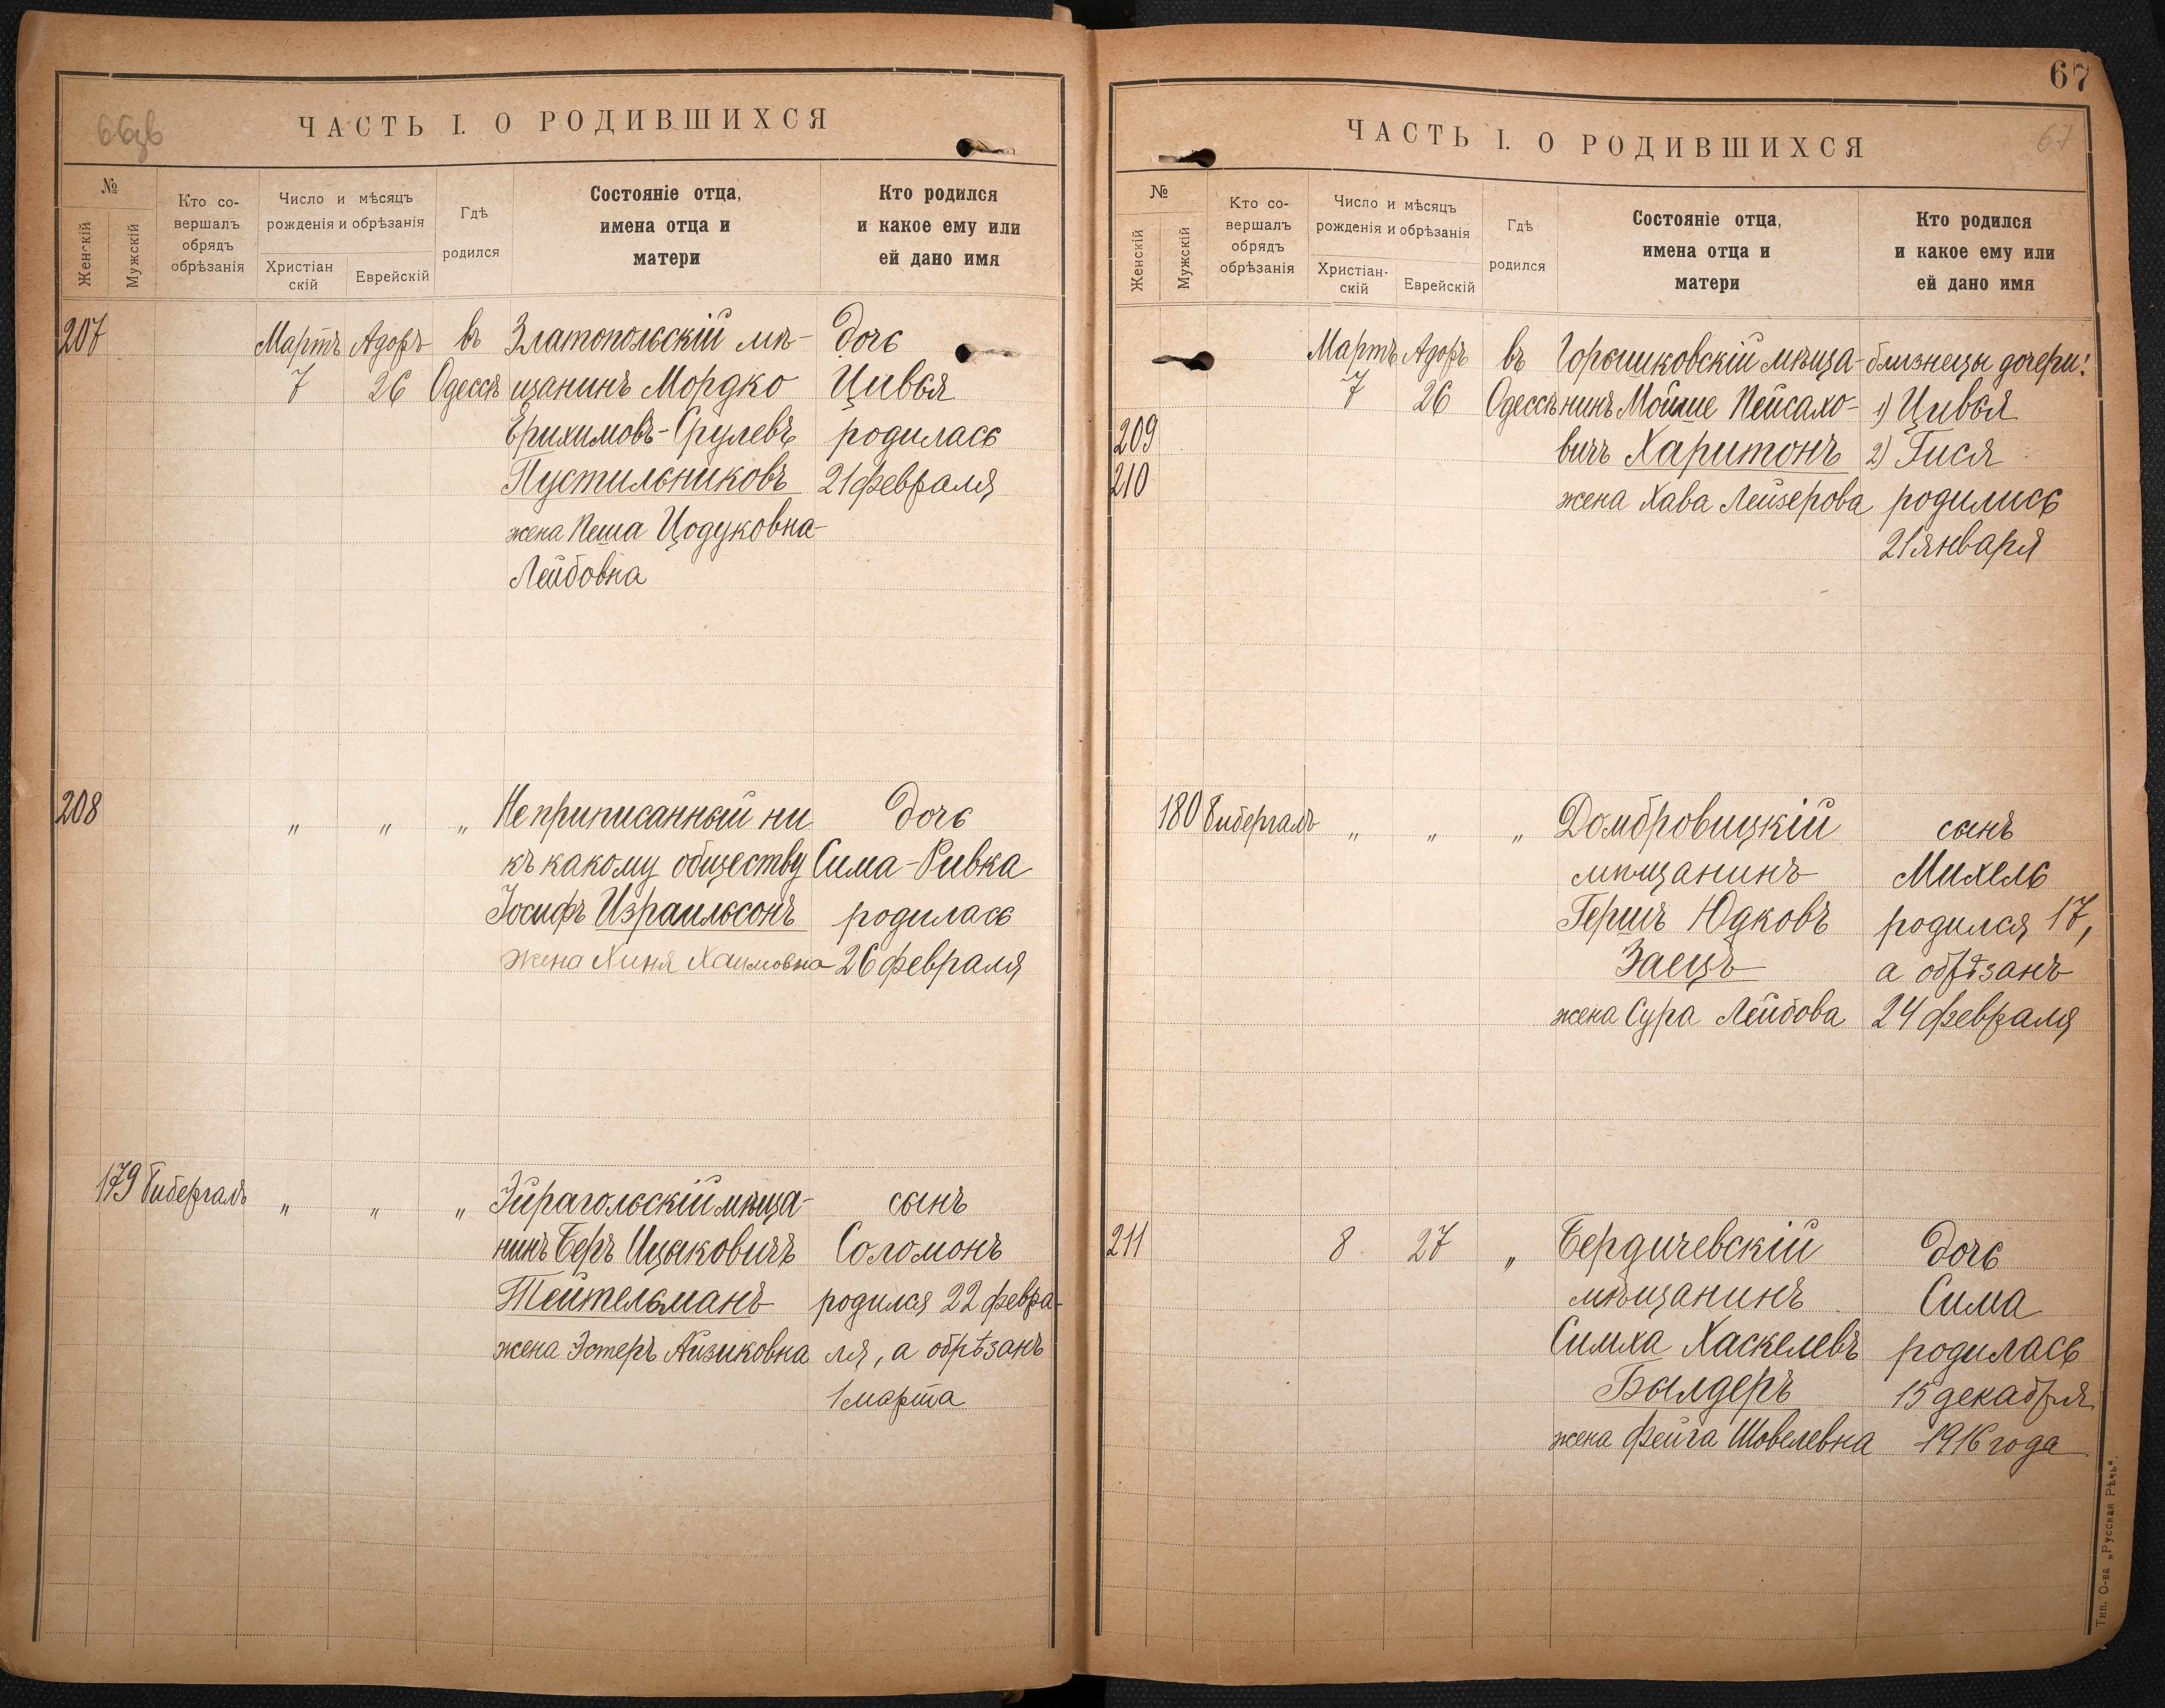 66об
ЧАСТЬ I. О РОДИВШИХСЯ
№
Женскій
Мужскій
Кто со-
вершалъ
обрядъ
обрѣзанія
Число и мѣсяцъ
рожденія и обрѣзанія
Христіан
скій
Еврейскій
Гдѣ
родился
Состояніе отца,
имена отца и
матери
Кто родился
и какое ему или
ей дано имя
207 Мартъ Адоръ въ Златопольскій мѣ- дочь
7 26 Одессѣ щанинъ Мордко Цивья
Ерихимовъ-Срулевъ родилась
Пустильниковъ 21 февраля
жена Пеша Цодуковна-
Лейбовна
208 " " " Не приписанный ни дочь
къ какому обществу Сима-Ривка
Іосифъ Израильсонъ родилась
жена Хиня Хаимовна 26 февраля
179 Гибергалъ " " " Эйрагольскій мѣща- сынъ
нинъ Беръ Ицыковичъ Соломонъ
Тейтельманъ родился 22 февра-
жена Эстеръ Айзиковна ля, а обрѣзанъ
1 марта
67
ЧАСТЬ I. О РОДИВШИХСЯ
67
№
Женскій
Мужскій
Кто со-
вершалъ
обрядъ
обрѣзанія
Число и мѣсяцъ
рожденія и обрѣзанія
Христіан-
скій
Еврейскій
Гдѣ
родился
Состояніе отца,
имена отца и
матери
Кто родился
и какое ему или
ей дано имя
Мартъ Адоръ въ Горышковскій мѣща- близнецы дочери:
7 26 Одессѣ нинъ Мойше Пейсахо- 1) Цивья
209 вичъ Харитонъ 2) Гися
210 жена Хава Лейзерова родились
21 января
180 Гибергалъ " " " Домбровицкій сынъ
мѣщанинъ Михель
Гершъ Юдковъ родился 17,
Заецъ а обрѣзанъ
жена Сура Лейбова 24 февраля
211 8 27 " Бердичевскій дочь
мѣщанинъ Сима
Симха Хаскелевъ родилась
Былдеръ 15 декабря
жена Фейга Шовелевна 1916 года
Тип. О-ва „Русская Рѣчь“.